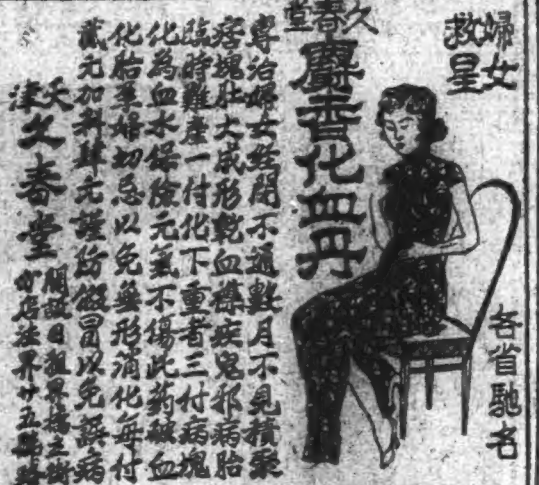 婦女
救星
各省馳名
久春堂
麝香化血丹
專治婦女經閉不通數月不見積聚
痞塊肚大成形乾血癆疾鬼邪病胎
臨時難產一付化下重者三付病塊
化為血水保險元氣不傷此葯破血
化胎孕婦切忌以免無形消化每付
貳元加料肆元謹防假冒以免誤病
天津
久春堂
開設日租界橋立街
分店法界廿五號路